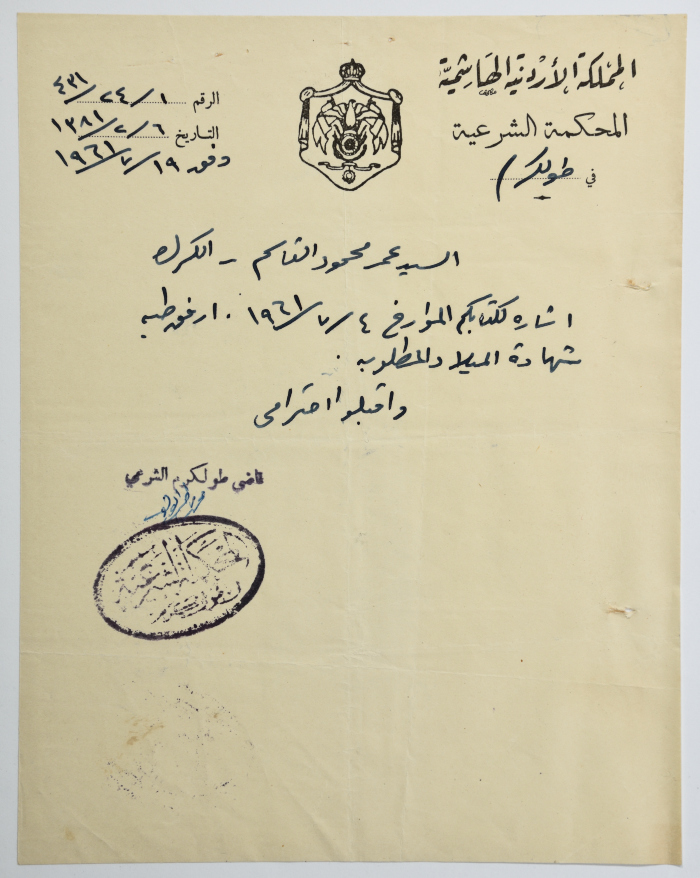 المملكة الأردنية الهاشمية
المحكمة الشرعية
في طولكرم
الرقم ١/٢٤/٤٣١
التاريخ ٦/٢/١٣٨١
وفق ١٩/٧/١٩٦١
السيد عمر محمود القاسم - الكرك
اشاره لكتابكم المؤرخ ٤/٧/١٩٦١. ارفق طيه
شهادة الميلاد المطلوبه.
واقبلوا احترامي
قاضي طولكرم الشرعي
المحكمة الشرعية